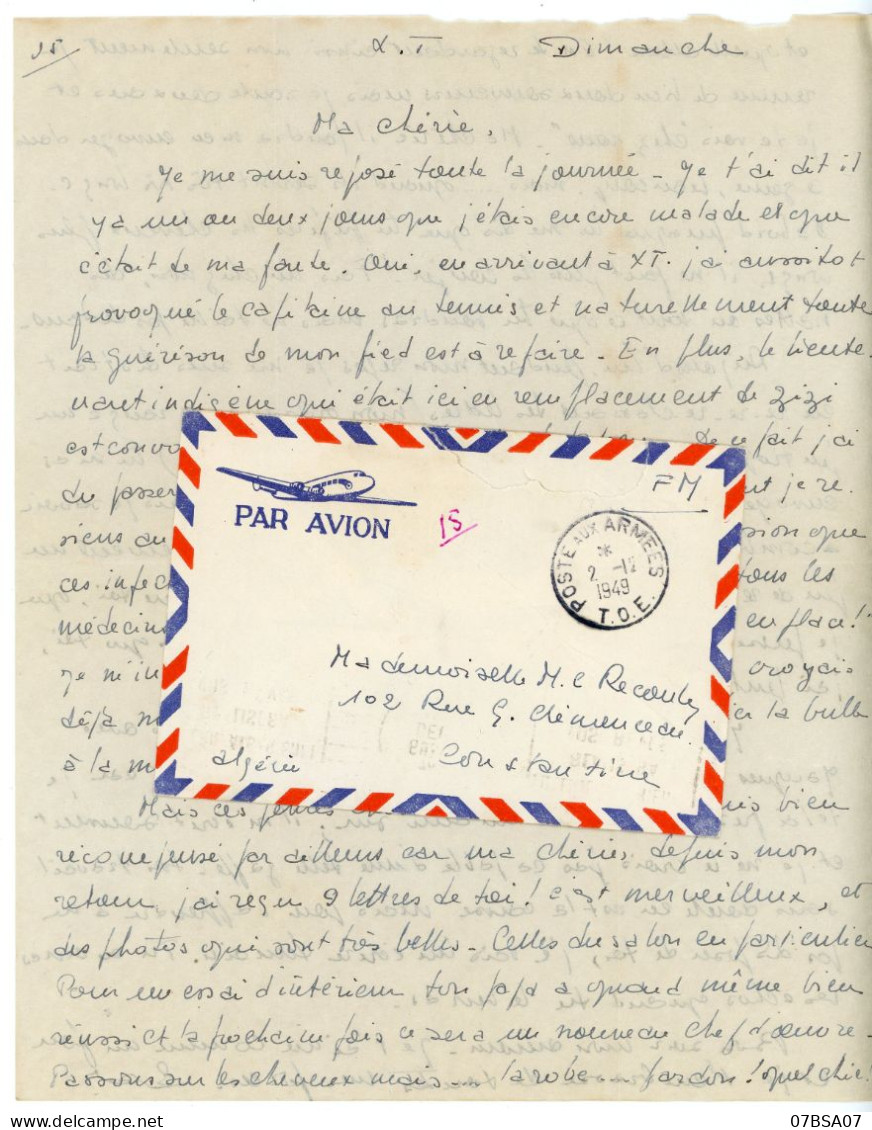 15 X.T Dimanche
Ma chérie,
Je me suis reposé toute la journée - Je t'ai dit il
y a un ou deux jours que j'étais encore malade et que
c'était de ma faute. Oui, en arrivant à XT. j'ai aussitot
provoqué le capitaine au tennis et naturellement toute
la guérison de mon pied est à refaire - En plus, le lieute-
nant indigène qui était ici en remplacement de zizi
est convo De ce fait j'ai
du passer nt je re.
siens au sion que
ces infec tous les
médecins en place!"
Je m'in croyais
déjà m la bulle
à la m
Mais ces is bien
récompensé par ailleurs car ma chérie, depuis mon
retour j'ai reçu 9 lettres de toi! c'est merveilleux, et
des photos qui sont très belles - Celles du salon en particulier
Pour un essai d'intérieur ton papa a quand même bien
réussi et la prochaine fois ce sera un nouveau chef d'oeuvre -
Passons sur les cheveux mais --- la robe --- pardon! quel chic!
PAR AVION
15
FM
POSTE AUX ARMEES
* 2 -12
1949
T.O.E.
Mademoiselle M.C Recouly
102 Rue G. Clémenceau.
Constantine
algérie
07BSA07